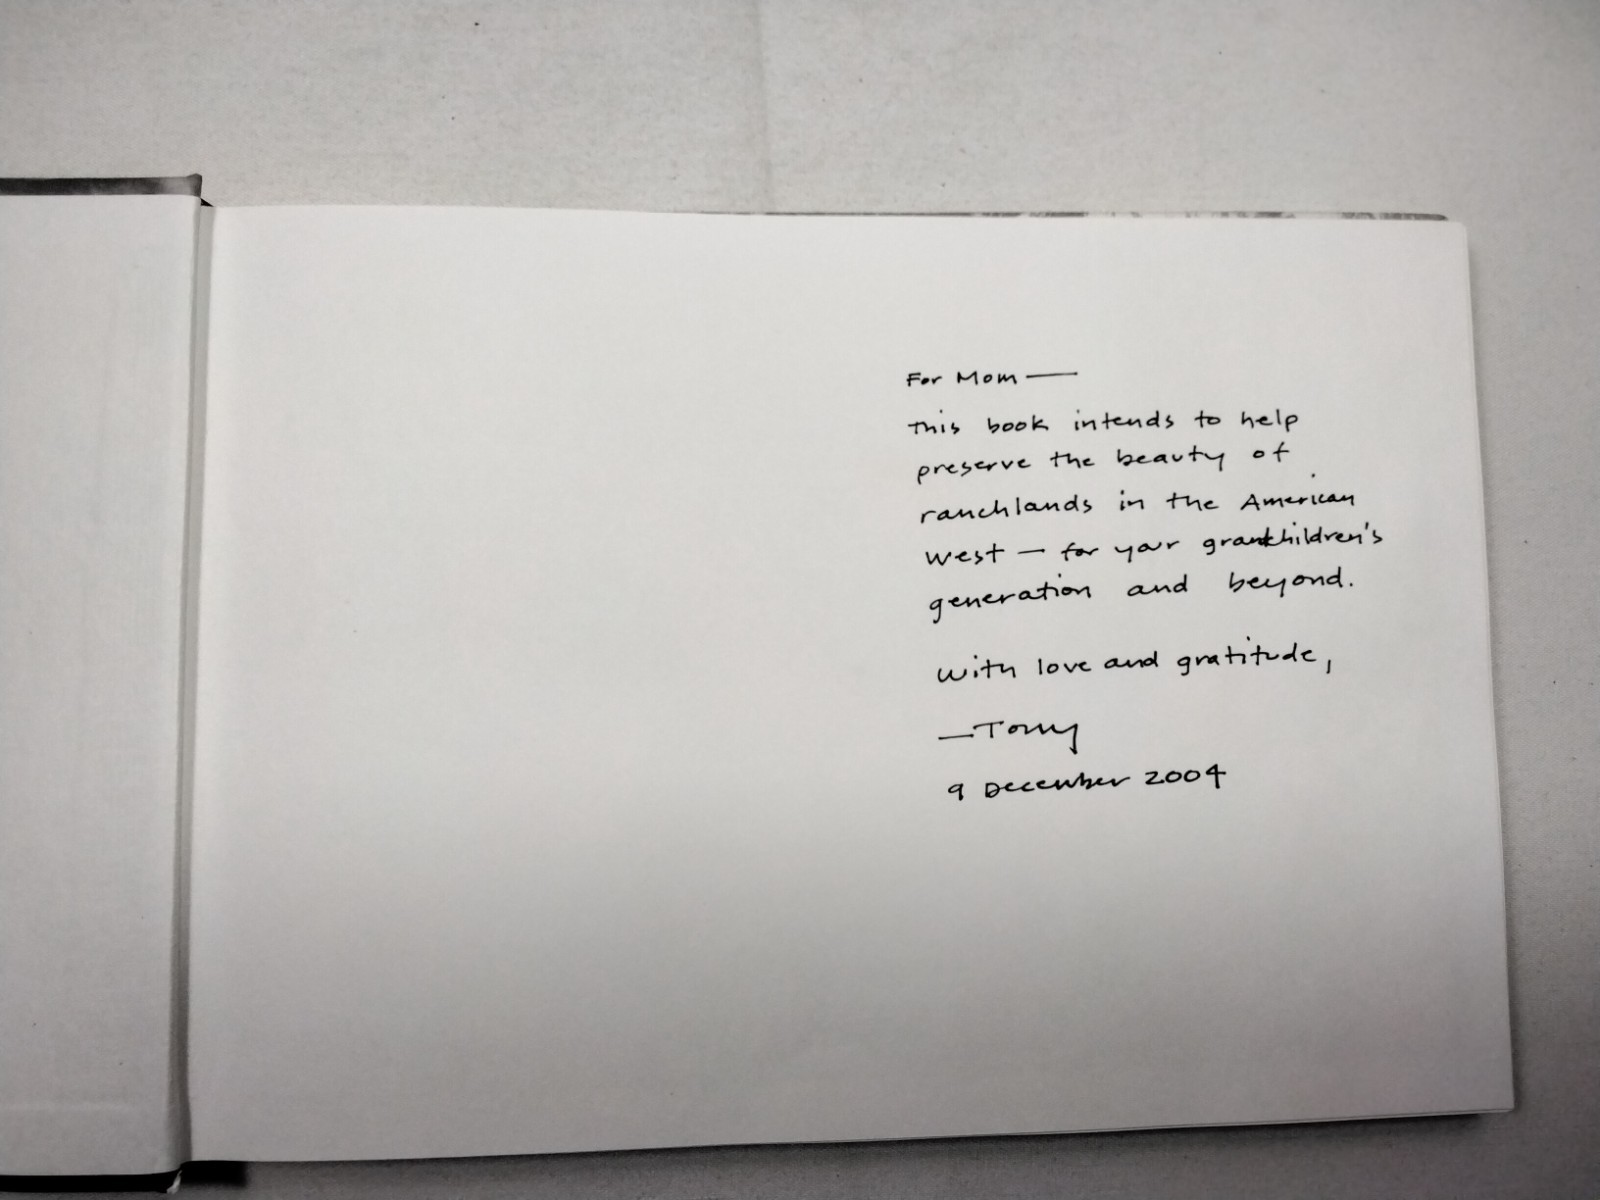 For Mom —
This book intends to help
preserve the beauty of
ranchlands in the American
West — for your grandchildren's
generation and beyond.
With love and gratitude,
— Tony
9 December 2004